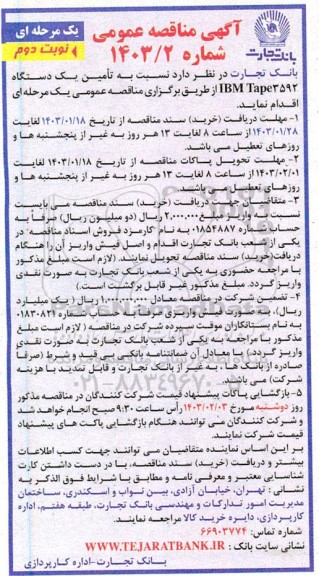 آگهی مناقصه عمومی
شماره ۱۴۰۳/۲
یک مرحله ای
نوبت دوم
بانک تجارت
بانک تجارت در نظر دارد نسبت به تأمین یک دستگاه
IBM Tape۳۵۹۲ از طریق برگزاری مناقصه عمومی یک مرحله ای
اقدام نمایند.
۱- مهلت دریافت (خرید) سند مناقصه از تاریخ ۱۴۰۳/۰۱/۱۸ لغایت
۱۴۰۳/۰۱/۲۸ از ساعت ۸ لغایت ۱۳ هر روز به غیر از پنجشنبه ها و
روزهای تعطیل می باشد.
۲- مهلت تحویل پاکات مناقصه از تاریخ ۱۴۰۳/۰۱/۱۸ لغایت
۱۴۰۳/۰۲/۰۱ از ساعت ۸ لغایت ۱۳ هر روز به غیر از پنجشنبه ها و
روزهای تعطیل می باشد.
۳- متقاضیان جهت دریافت (خرید) سند مناقصه می بایست
نسبت به واریز مبلغ ۲,۰۰۰,۰۰۰ ریال (دو میلیون ریال) صرفاً به
حساب شماره ۰۱۸۵۴۸۸۷ به نام "کارمزد فروش اسناد مناقصه" در
یکی از شعب بانک تجارت اقدام و اصل فیش واریز آن را هنگام
دریافت (خرید) سند مناقصه تحویل نمایند. (لازم است مبلغ مذکور
با مراجعه حضوری به یکی از شعب بانک تجارت به صورت نقدی
واریز گردد. مبلغ مذکور غیر قابل برگشت است.)
۴- تضمین شرکت در مناقصه معادل ۱,۰۰۰,۰۰۰,۰۰۰ ریال (یک میلیارد
ریال)، به صورت فیش واریزی صرفاً به حساب شماره ۰۱۸۳۰۸۲۱
به نام بستانکاران موقت سپرده شرکت در مناقصه (لازم است مبلغ
مذکور با مراجعه به یکی از شعب بانک تجارت به صورت نقدی
واریز گردد.) یا معادل آن ضمانتنامه بانکی بی قید و شرط (صرفاً
صادره از بانک ها، به غیر از بانک تجارت و قابل تمدید با هزینه
شرکت) می باشد.
۵- بازگشایی پاکات پیشنهاد قیمت شرکت کنندگان در مناقصه مذکور
روز دوشنبه مورخ ۱۴۰۳/۰۲/۰۳ رأس ساعت ۹:۳۰ صبح انجام خواهد شد
و شرکت کنندگان می توانند هنگام بازگشایی پاکت های پیشنهاد
قیمت شرکت نمایند.
بر این اساس نماینده متقاضیان می توانند جهت کسب اطلاعات
بیشتر و دریافت (خرید) سند مناقصه، با در دست داشتن کارت
شناسایی معتبر و معرفی نامه و مطابق با شرایط فوق الذکر به
نشانی: تهران، خیابان آزادی، بین نواب و اسکندری، ساختمان
مدیریت امور تدارکات و مهندسی بانک تجارت، طبقه هفتم، اداره
کارپردازی، دایره خرید کالا مراجعه نمایند.
شماره تماس: ۶۶۹۰۳۷۷۴
نشانی سایت بانک: WWW.TEJARATBANK.IR
بانک تجارت-اداره کارپردازی
۰۲۱-۸۸۳۴۹۶۷۰